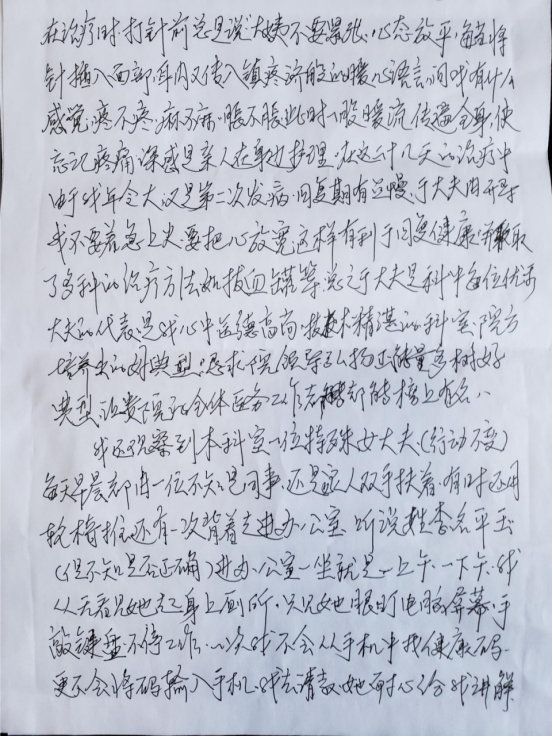 在治疗时,打针前总是说"大姨不要紧张,心态放平,每当将
针插入面部,耳内又传入镇疼济般的暖心语言,问我有什么
感觉,疼不疼,麻不麻,胀不胀,此时一股暖流传遍全身,使
忘记疼痛,深感是亲人在身边护理,在这十几天的治疗中
由于我年令大,又是第二次发病,回复期有点慢,于大夫开导
我不要着急上火,要把心放宽这样有利于回复健康,并采取
了多种的治疗方法如拔血罐等,总之于大夫是科中每位优秀
大夫的代表,是我心中医德高尚,技术精湛的科室,院方
培养出的好典型,恳求院领导弘扬正能量多树好
典型,让贵院的全体医务工作者都能榜上有名,
我还观察到本科室一位特殊女大夫,(行动不变)
每天早晨都由一位不知是同事,还是家人双手扶着,有时还用
轮椅推,还有一次背着走进办公室,听说姓李名平玉
(但不知是否正确)进办公室一坐就是一上午,一下午,我
从无看见她起身上厕所,只见她眼盯电脑屏幕,手
敲键盘不停工作,一次我不会从手机中找健康码,
更不会将码输入手机,我去请教,她耐心给我讲解